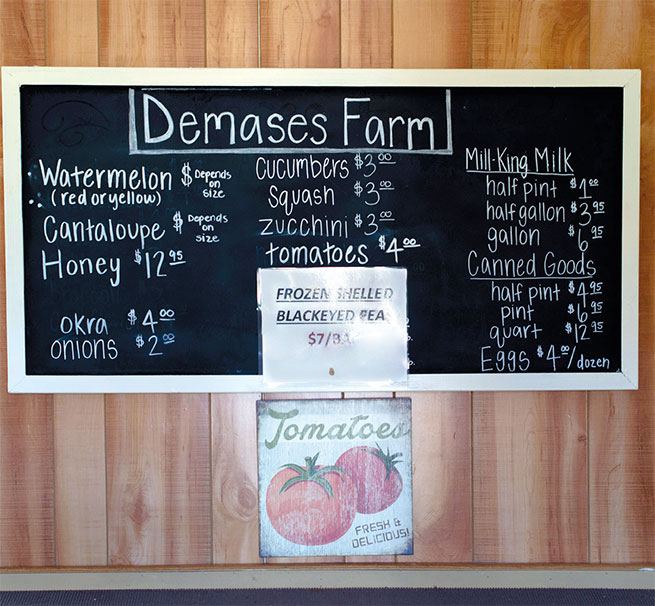 Demases Farm
Watermelon $ Depends on size
(red or yellow)
Cantaloupe $ Depends on size
Honey $12.95
okra $4.00
onions $2.00
Cucumbers $3.00
Squash $3.00
zucchini $3.00
tomatoes $4.00
FROZEN SHELLED
BLACKEYED PEAS
$7/BAG
Mill-King Milk
half pint $1.00
half gallon $3.95
gallon $6.95
Canned Goods
half pint $4.95
pint $6.95
quart $12.95
Eggs $4.00/dozen
Tomatoes
FRESH &
DELICIOUS!